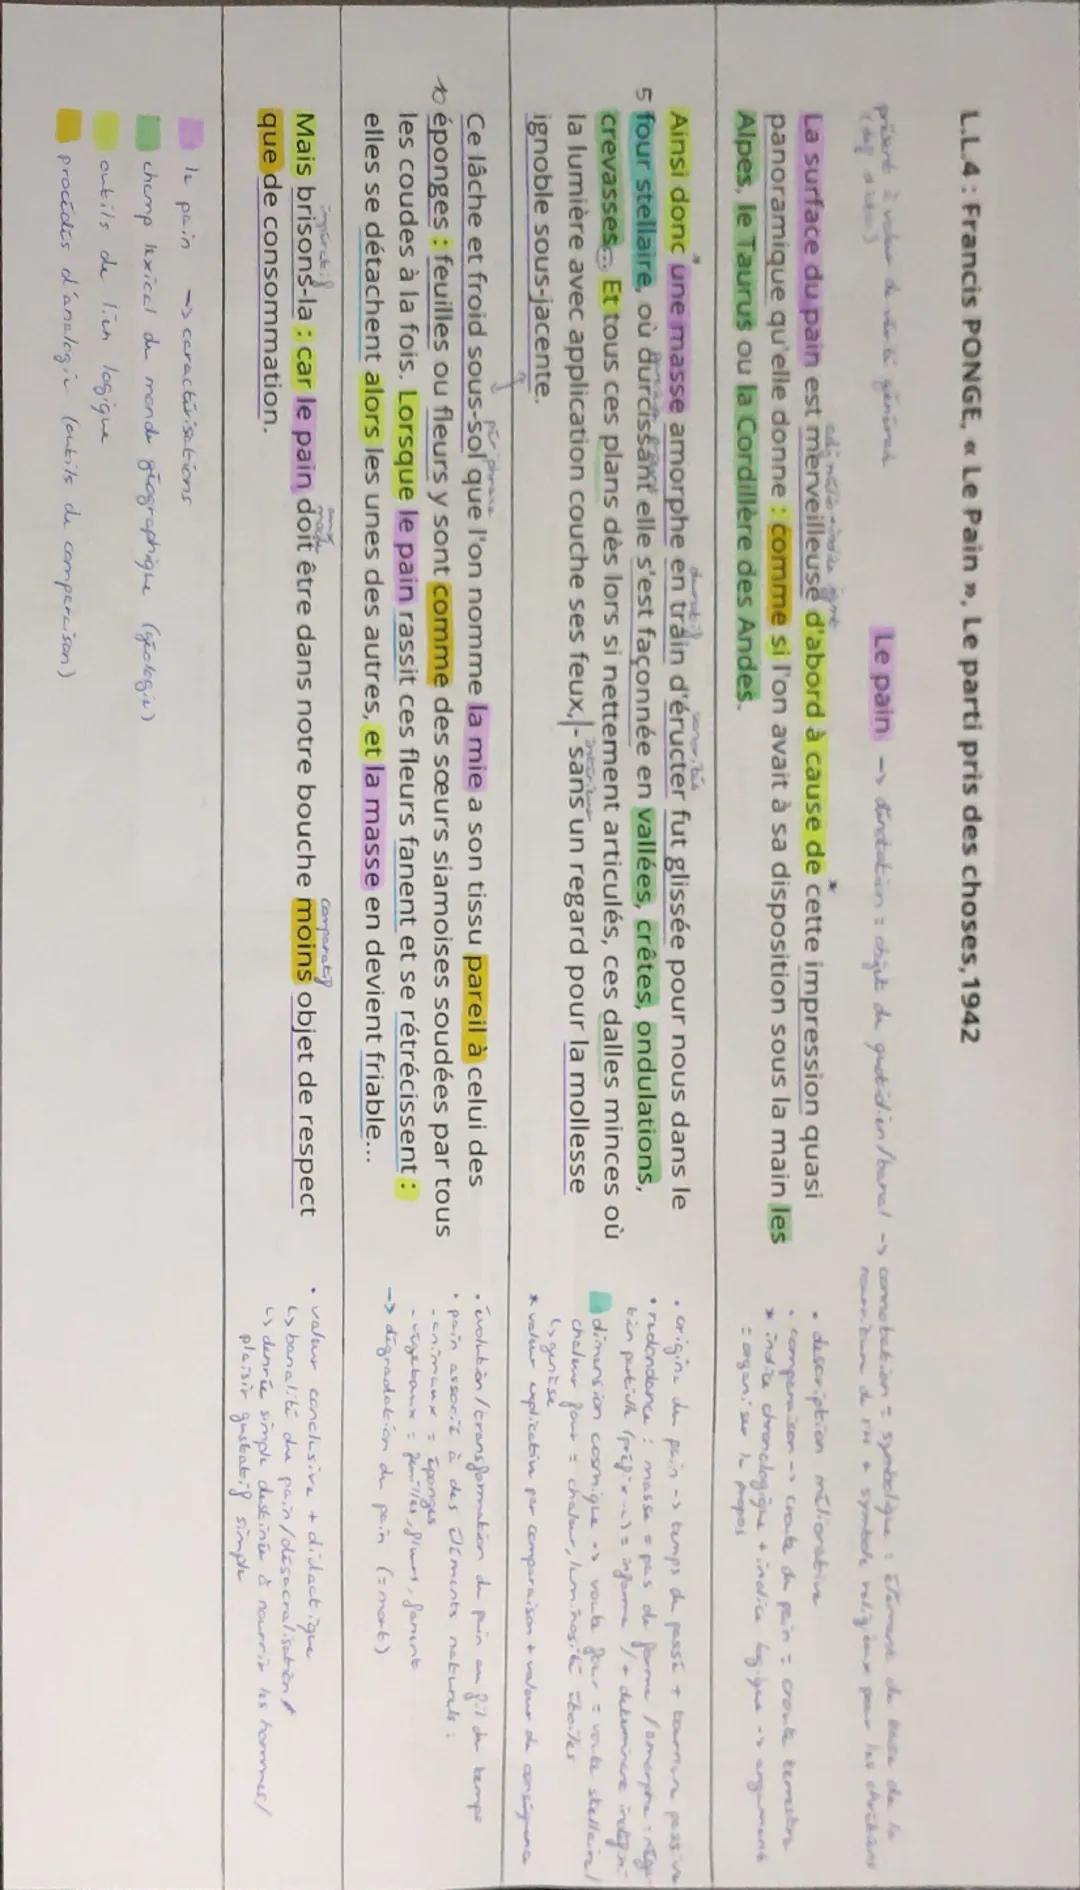 L.L.4 : Francis PONGE, « Le Pain », Le parti pris des choses, 1942
présent à valeur de vérité générale
Le pain -> dénotation : objet du quotidien/banal -> connotation = symbolique : élément de base de la
nourriture de + symbole religieux pour les chrétiens
La surface du pain est merveilleuse d'abord à cause de cette impression quasi
panoramique qu'elle donne : comme si l'on avait à sa disposition sous la main les
Alpes, le Taurus ou la Cordillère des Andes.
• description méliorative
• comparaison -> croute du pain = croute terrestre
* indice chronologique + indice logique -> argument
= organiser le propos
duratif
sonorités
Ainsi donc une masse amorphe en train d'éructer fut glissée pour nous dans le
5 four stellaire, où durcissant elle s'est façonnée en vallées, crêtes, ondulations,
crevasses... Et tous ces plans dès lors si nettement articulés, ces dalles minces où
la lumière avec application couche ses feux, - sans un regard pour la mollesse
intérieur
ignoble sous-jacente.
• origine du pain -> temps du passé + tournure passive
• redondance : masse = pas de forme / amorphe :
= informe / + déterminant indéfini
dimension cosmique -> voute four = voute stellaire/
chaleur four = chaleur, luminosité étoiles
↳ genèse
* valeur explicative par comparaison + valeur de conséquence
périphrase
Ce lâche et froid sous-sol que l'on nomme la mie a son tissu pareil à celui des
10 éponges : feuilles ou fleurs y sont comme des sœurs siamoises soudées par tous
les coudes à la fois. Lorsque le pain rassit ces fleurs fanent et se rétrécissent :
elles se détachent alors les unes des autres, et la masse en devient friable...
• évolution/transformation du pain au fil du temps
• pain associé à des éléments naturels :
- animaux = éponges
- végétaux = feuilles, fleurs, fanent
-> dégradation du pain (= mort)
impératif
comparatif
Mais brisons-la : car le pain doit être dans notre bouche moins objet de respect
que de consommation.
• valeur conclusive + didactique
↳ banalité du pain/désacralisation
↳ denrée simple destinée à nourrir les hommes/
plaisir gustatif simple
le pain -> caractérisations
champ lexical du monde géographique (géologie)
outils de lien logique
procédés d'analogie (outils de comparaison)